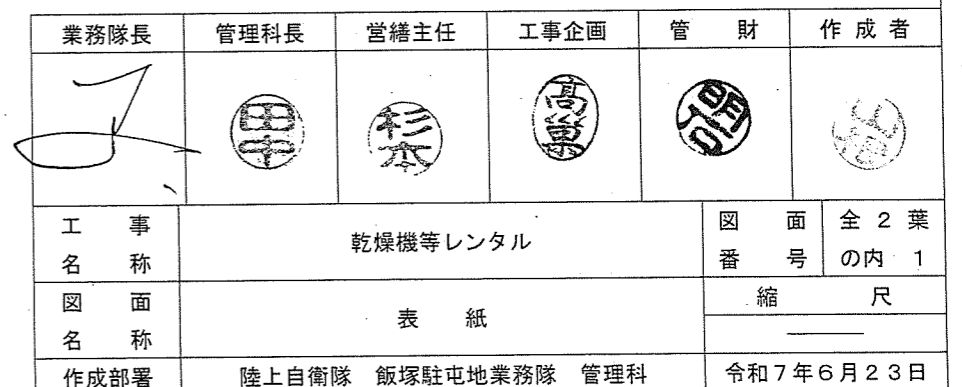 業務隊長 管理科長 営繕主任 工事企画 管財 作成者
田中 杉本 高巣 明石
工事名称 乾燥機等レンタル 図面番号 全2葉の内 1
図面名称 表紙 縮尺
作成部署 陸上自衛隊 飯塚駐屯地業務隊 管理科 令和7年6月23日